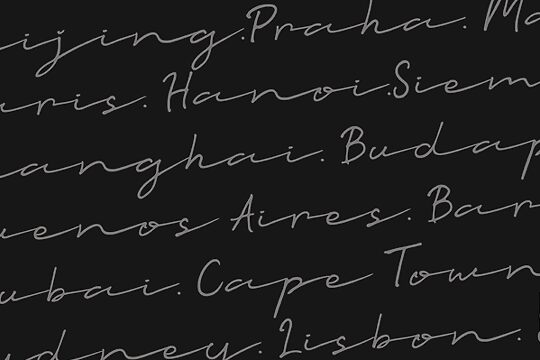 ijing. Praha. Ma
uris. Hanoi. Siem
anghai. Budap
uenos Aires. Bar
ubai. Cape Town
dney. Lisbon.